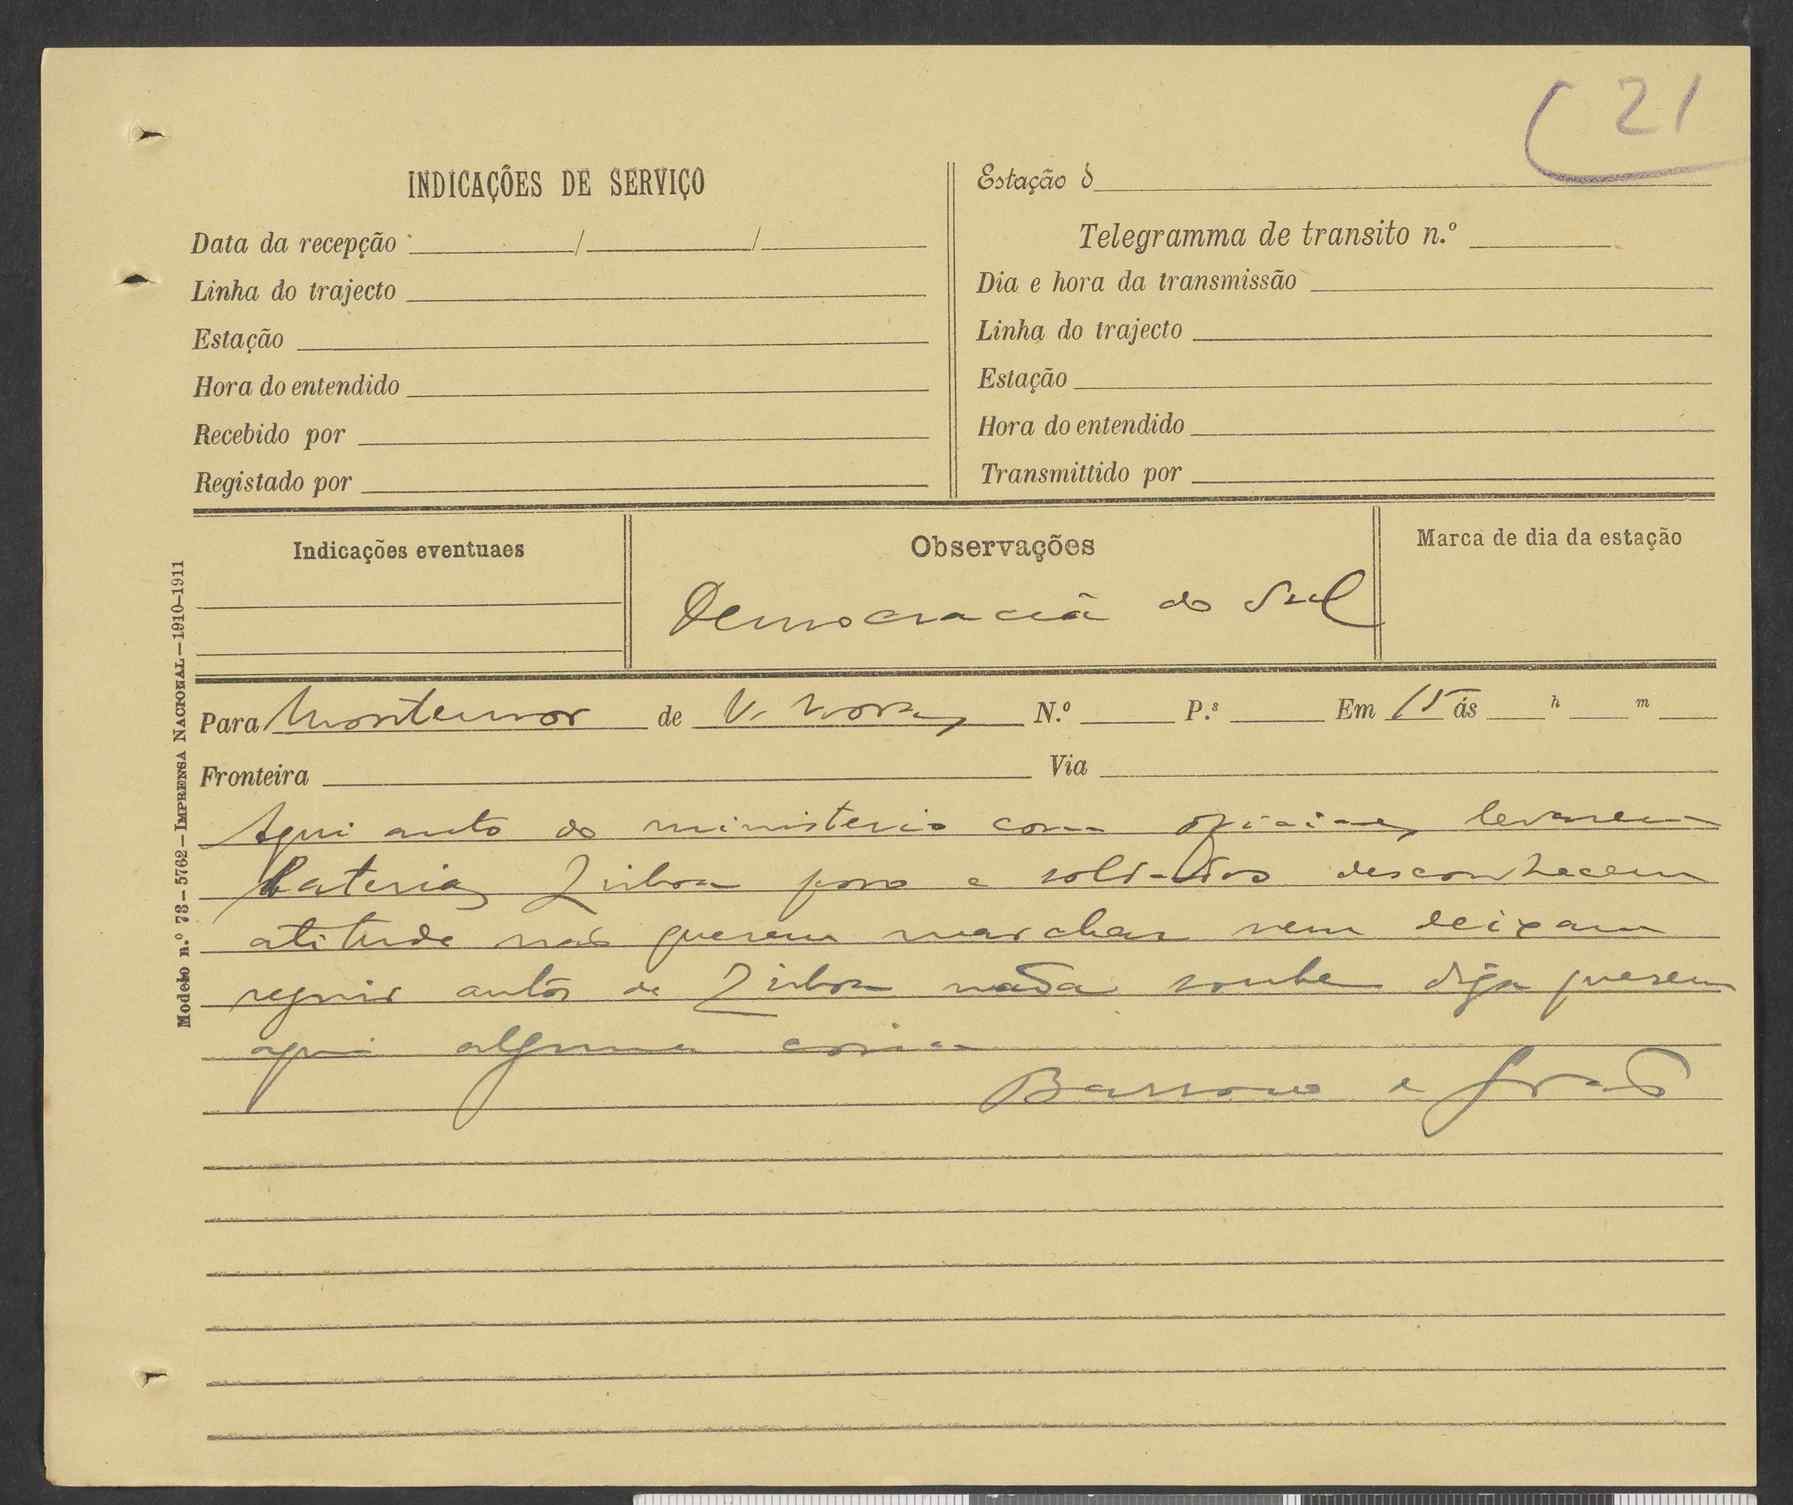 21
INDICAÇÕES DE SERVIÇO
Data da recepção / /
Linha do trajecto
Estação
Hora do entendido
Recebido por
Registado por
Estação d
Telegramma de transito n.º
Dia e hora da transmissão
Linha do trajecto
Estação
Hora do entendido
Transmittido por
Indicações eventuaes
Observações
Democracia do Sul
Marca de dia da estação
Modelo n.º 73—5762—IMPRENSA NACIONAL—1910-1911
Para Montemor de V. Novas N.º P.s Em 15 ás h m
Fronteira Via
Aqui auto do ministerio com oficiaes levarem
baterias Lisboa povo e soldados desconhecem
atitude não querem marchar nem deixam
seguir autos de Lisboa nada soube diga querem
aqui alguma coisa